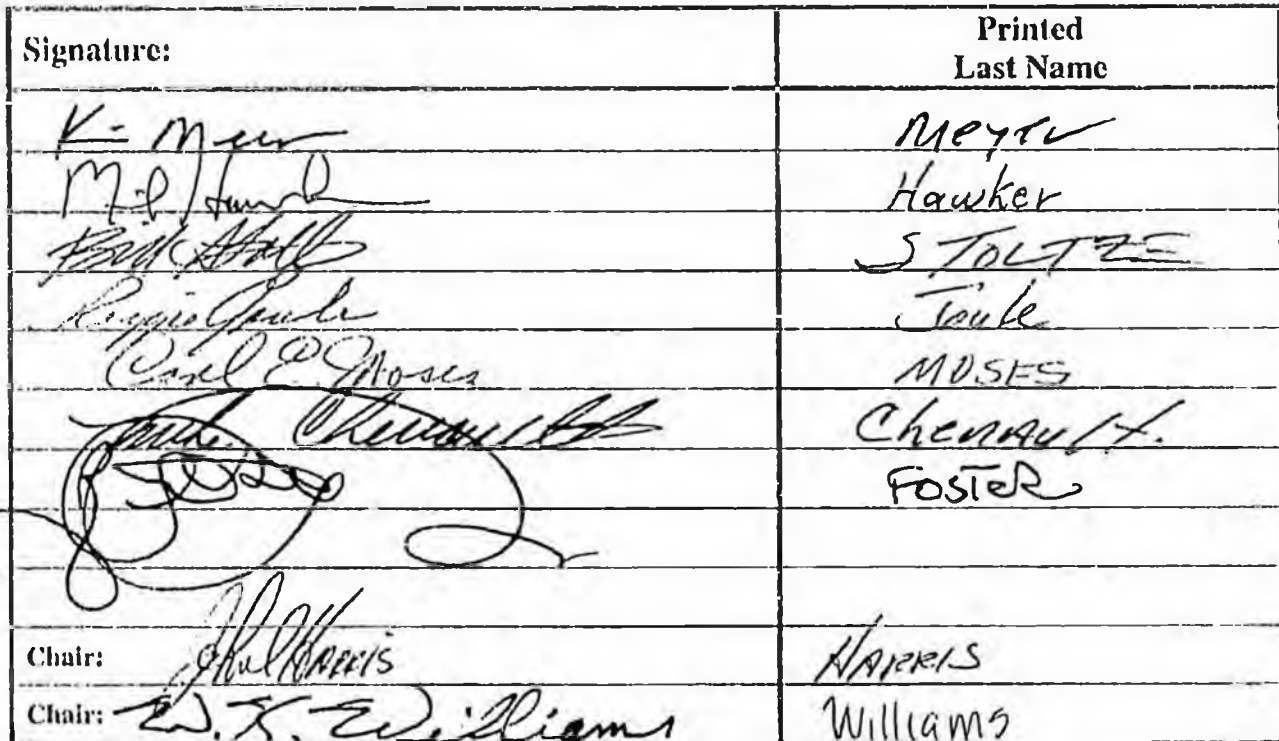 Signature: Printed
Last Name
K- Meyer Meyer
Hawker
Bill Stoltze STOLTZE
Reggie Joule Joule
Carl E. Moses MOSES
Chenault Chenault.
FOSTER
Chair: John Harris HARRIS
Chair: W. K. Williams Williams